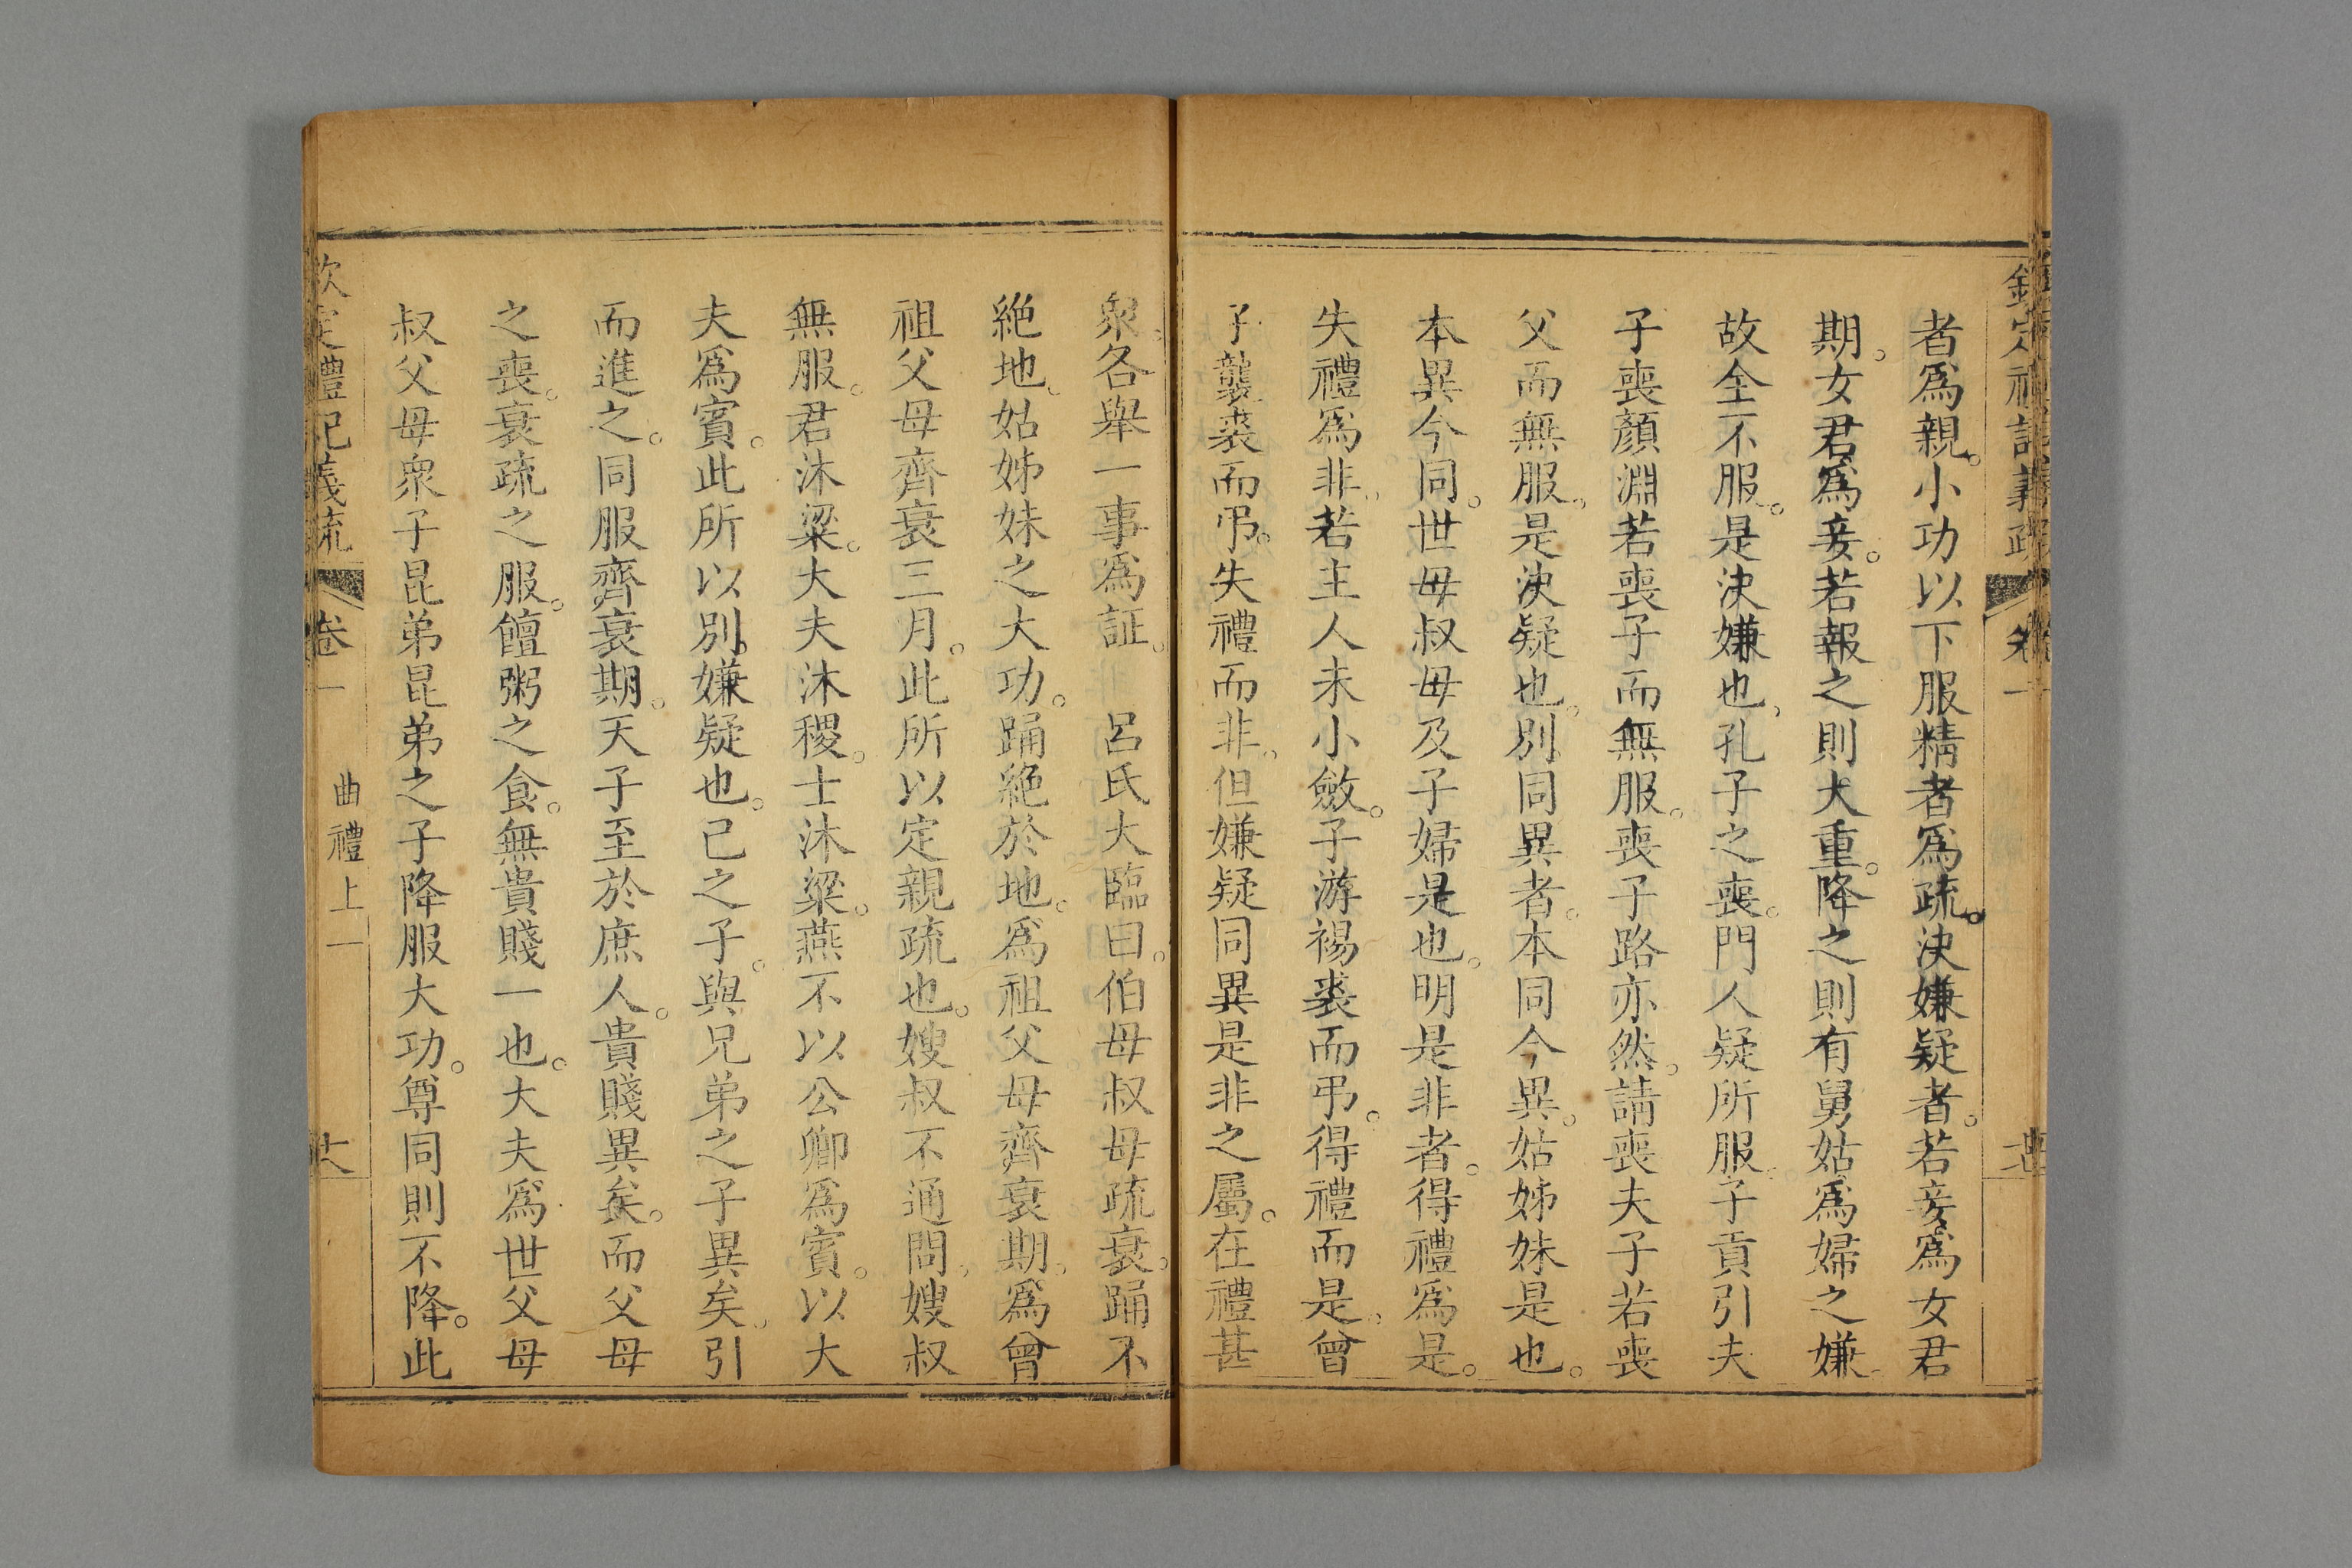 者爲親。小功以下服精者爲疏。決嫌疑者。若妾爲女君
期。女君爲妾。若報之則太重。降之則有舅姑爲婦之嫌。
故全不服。是決嫌也。孔子之喪。門人疑所服。子貢引夫
子喪顏淵若喪子而無服。喪子路亦然。請喪夫子若喪
父而無服。是決疑也。別同異者。本同今異。姑姊妹是也。
本異今同。世母叔母及子婦是也。明是非者。得禮爲是。
失禮爲非。若主人未小斂。子游裼裘而弔。得禮而是。曾
子襲裘而弔。失禮而非。但嫌疑同異是非之屬。在禮甚
衆。各舉一事爲証。 呂氏大臨曰。伯母叔母疏衰。踊不
絕地。姑姊妹之大功。踊絕於地。爲祖父母齊衰期。爲曾
祖父母齊衰三月。此所以定親疏也。嫂叔不通問。嫂叔
無服。君沐粱。大夫沐稷。士沐粱。燕不以公卿爲賓。以大
夫爲賓。此所以別嫌疑也。己之子。與兄弟之子異矣。引
而進之。同服齊衰期。天子至於庶人。貴賤異矣。而父母
之喪。衰疏之服。饘粥之食。無貴賤一也。大夫爲世父母
叔父母衆子昆弟昆弟之子降服大功。尊同則不降。此
欽定禮記義疏 卷一 曲禮上一